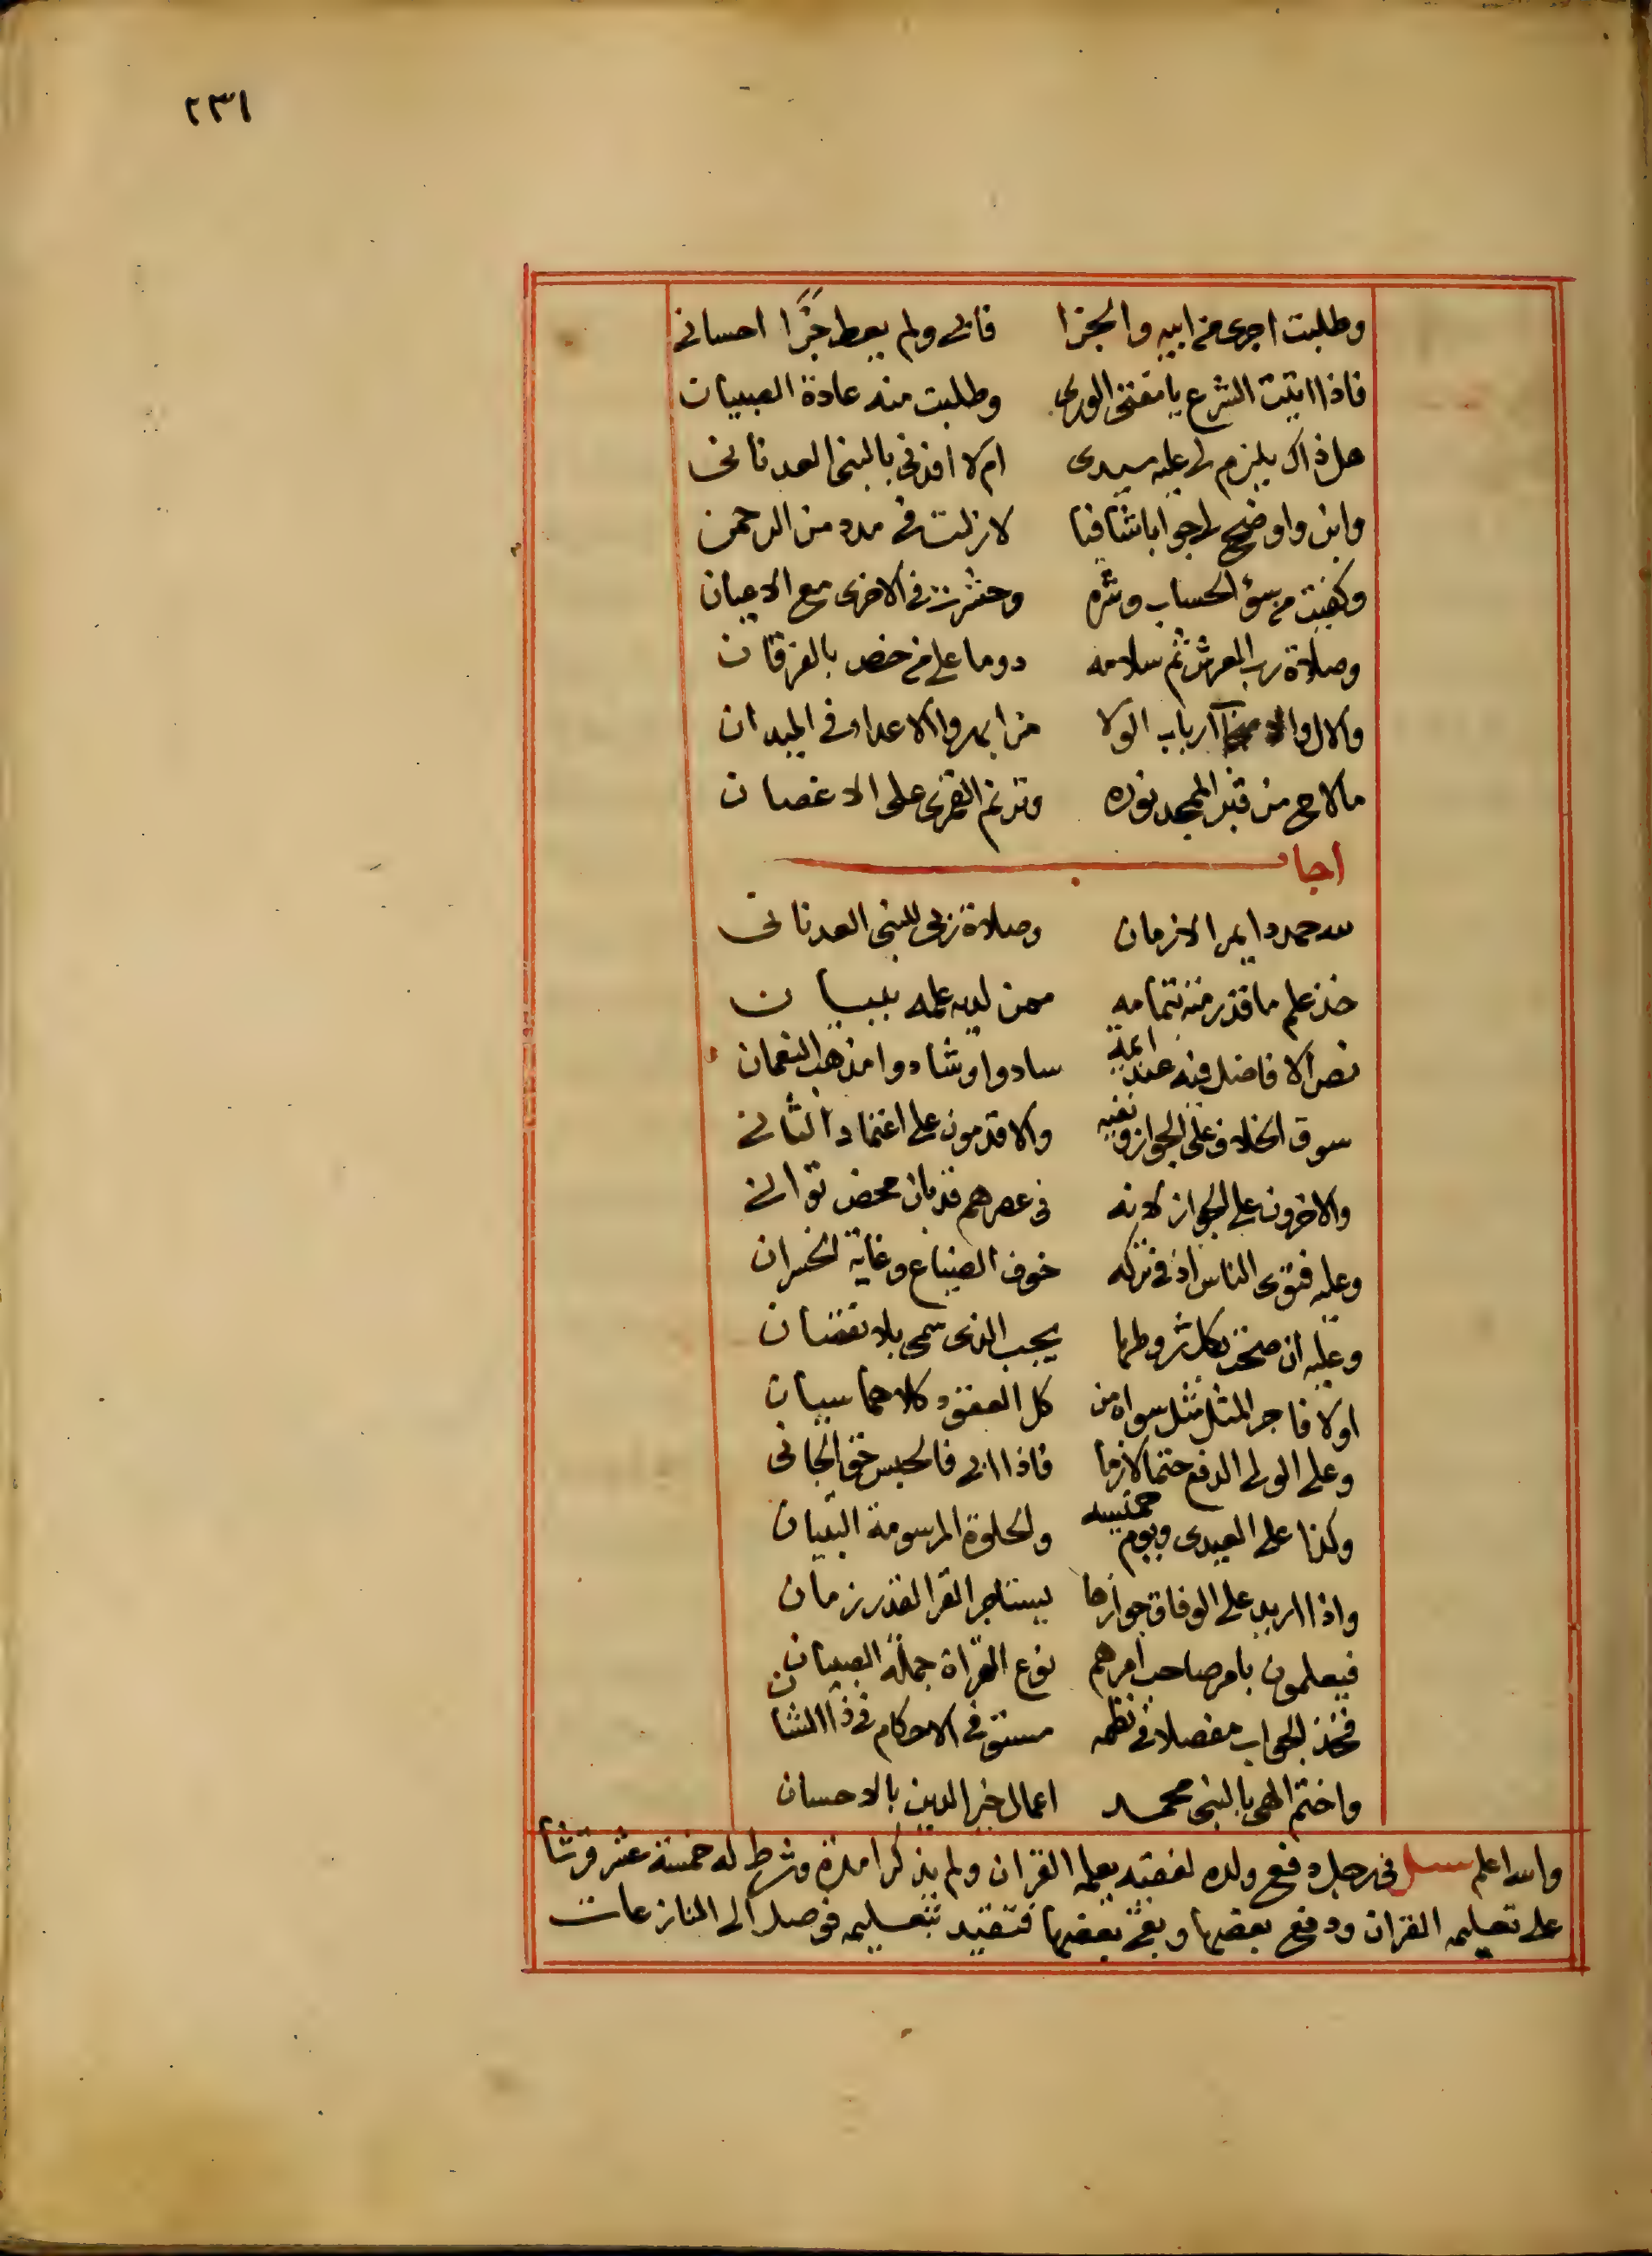 ٢٣١
وطلبت اجرى من ابيه والجزا فابى ولم يعط جزا احسانى
فاذا اتيت الشرع يا مفتى الورى وطلبت منه عادة الصبيان
هل ذاك يلزم لى عليه سيدى ام لا افدنى بالنبى العدنانى
وابن واوضح لى جوابا شافيا لا زلت فى مدد من الرحمن
وكفيت من سؤ الحساب وشره وحشرت فى الاخرى مع الاعيان
وصلاة رب العرش ثم سلامه دوما على من خص بالفرقان
والال و ارباب الولا من ابهروا الاعداء فى الميدان
ما لاح من قبر الممجد نوره وترنم القمرى على الاغصان
اجاب
لله حمد دايم الازمان وصلاة ربى للنبى العدنانى
خذ علم ما قد رمته بتمامه ممن لديه علمه ببيان
نص الافاضل فيه عند ايمة سادوا وشادوا مذهب النعمان
سوق الخلاف على الجواز ونفيه والاقدمون على اعتماد الثانى
والاخرون على الجواز لانه فى عصرهم قد بان محض توانى
وعليه فتوى الناس اذ فى تركه خوف الضياع وغاية الخسران
وعليه ان صحت بكل شروطها يجب الذى سمى بلا نقصان
اولا فاجر المثل مثل سواه من كل العقود كلاهما سيان
وعلى الولى الدفع حتما لازما فاذا ابى فالحبس حق الجانى
وكذا على العيدى ويوم خميسه والحلوة المرسومة التبيان
واذا اريد على الوفاق جوازها يستاجر القرا لقدر زمان
فيعلمون بامر صاحب امرهم نوع القراة جملة الصبيان
فخذ الجواب مفصلا فى نظمه مستوفى الاحكام فى ذا الشان
واختم الهى بالنبى محمد اعمال خير الدين بالاحسان
والله اعلم سئل فى رجل دفع ولده لفقيه يعلمه القران ولم يذكرا مدة وشرط له خمسة عشر قرشا
على تعليمه القران ودفع بعضها وبقى بعضها فتقيد بتعليمه فوصل الى المنازعات